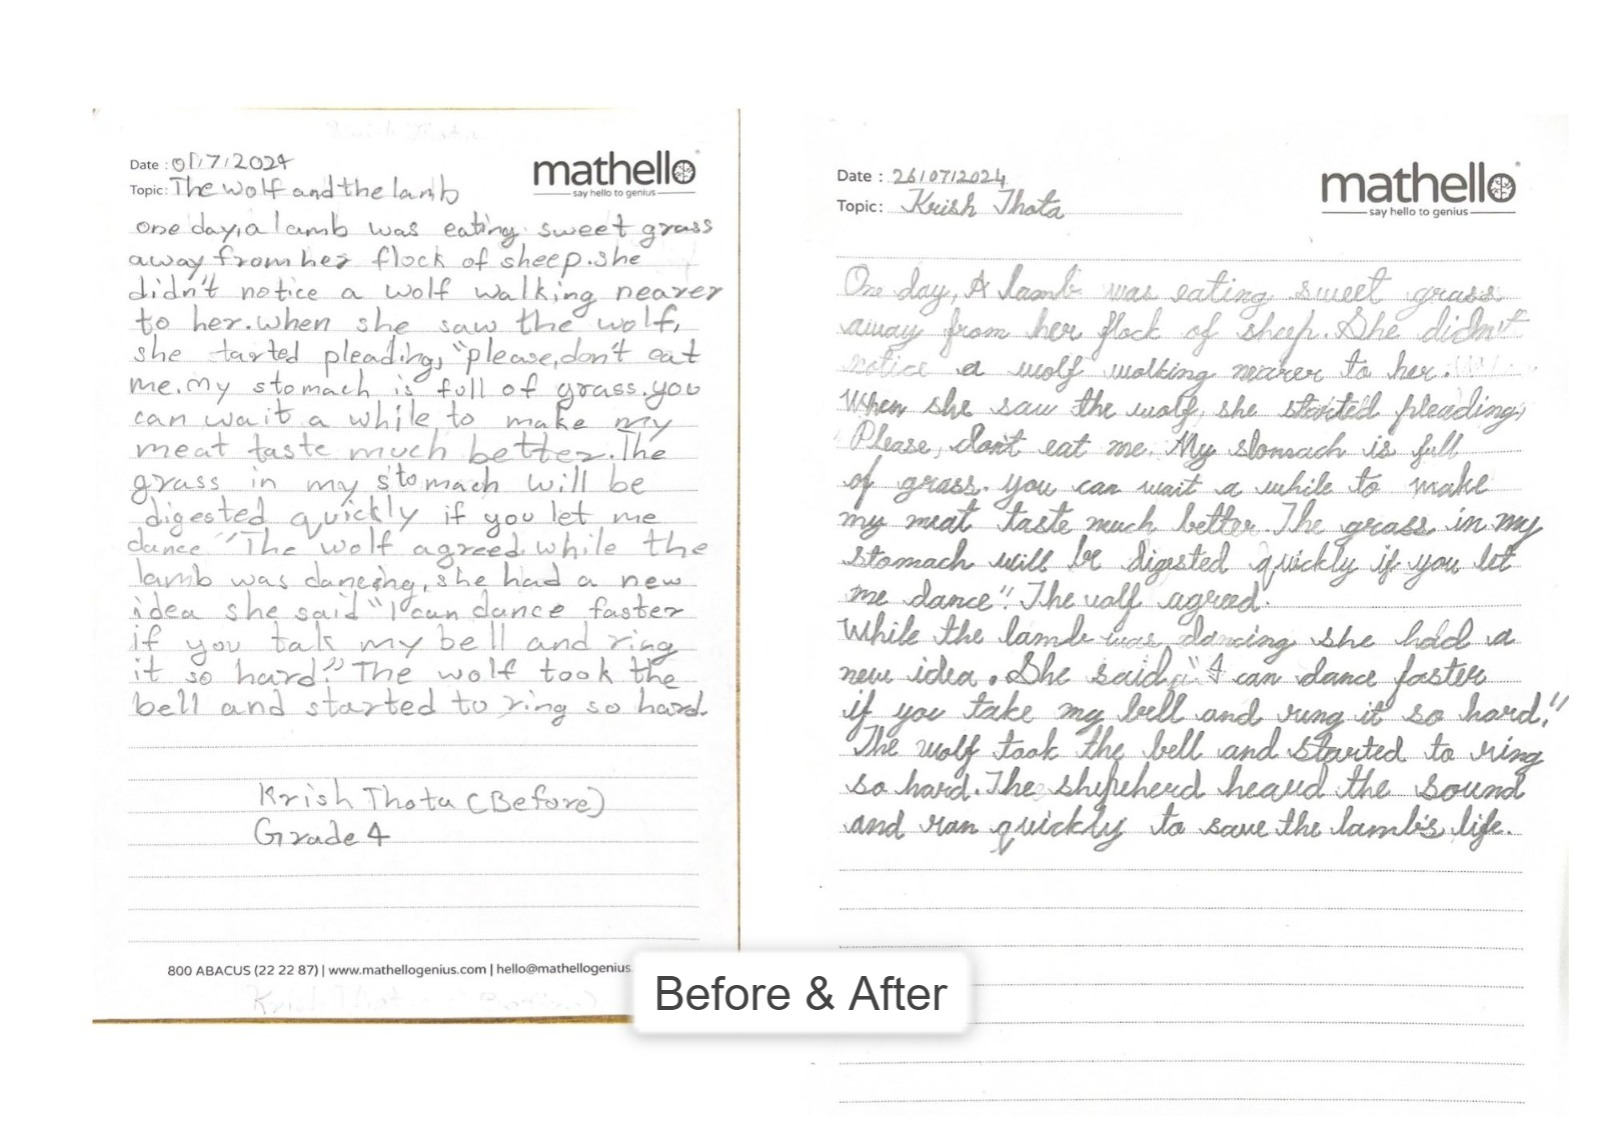 Date : 01/7/2024
mathello
say hello to genius
Topic: The wolf and the lamb
one day, a lamb was eating sweet grass
away from her flock of sheep. she
didn't notice a wolf walking nearer
to her. when she saw the wolf,
she tarted pleading, "please, don't eat
me. my stomach is full of grass. you
can wait a while to make my
meat taste much better. The
grass in my stomach will be
digested quickly if you let me
dance" The wolf agreed. while the
lamb was dancing, she had a new
idea she said "I can dance faster
if you tak my bell and ring
it so hard." The wolf took the
bell and started to ring so hard.
Krish Thota (Before)
Grade 4
800 ABACUS (22 22 87) | www.mathellogenius.com | hello@mathellogenius.
Date : 26/07/2024
mathello
say hello to genius
Topic: Krish Thota
One day, A lamb was eating sweet grass
away from her flock of sheep. She didn't
notice a wolf walking nearer to her.
When she saw the wolf, she started pleading,
Please, don't eat me. My stomach is full
of grass. you can wait a while to make
my meat taste much better. The grass in my
stomach will be digested quickly if you let
me dance". The wolf agreed.
While the lamb was dancing she had a
new idea. She said, "I can dance faster
if you take my bell and rung it so hard."
The wolf took the bell and started to ring
so hard. The shepeherd heard the sound
and ran quickly to save the lamb's life.
Before & After